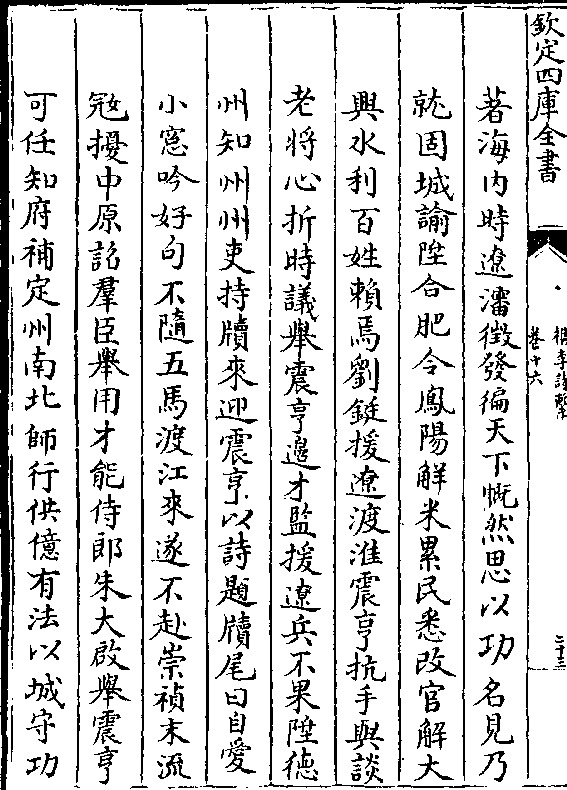 欽定四庫全書
檇李詩繫
卷十六
二十三
著海内時遼瀋徵發徧天下慨然思以功名見乃
就固城諭陞合肥令鳳陽解米累民悉改官解大
興水利百姓賴焉劉鋌援遼渡淮震亨抗手與談
老將心折時議舉震亨邊才監援遼兵不果陞德
州知州州吏持牘來迎震亨以詩題牘尾曰自愛
小窓吟好句不隨五馬渡江來遂不赴崇禎末流
冦擾中原詔羣臣舉用才能侍郎朱大啟舉震亨
可任知府補定州南北師行供億有法以城守功